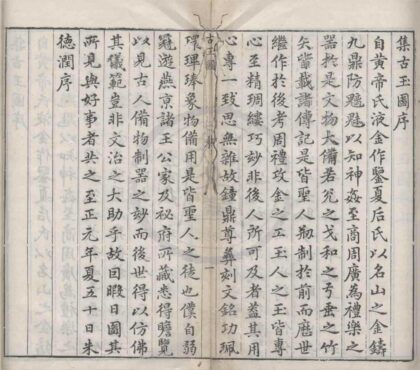 集古玉圖序
自黃帝氏液金作鑒夏后氏以名山之金鑄
九鼎防魑魅以知神姦至高周廣為禮樂之
器於是文物大備若兌之戈和之弓垂之竹
矢皆載諸傳記是皆聖人刱制於前而歷世
繼作於後考周禮攻金之工玉人之玉皆專
心至精琱縷巧玅非後人所可及者蓋其用
心專一致思無雜故鐘鼎尊彝刻文銘功珮
環琫象物備用是皆聖人之徒也僕自弱
冠遊燕京諸王公家及秘府所藏悉得瞻覽
以見古人備物制器之玅而後世得以仿佛
其儀範豈非文治之大助乎故因暇日圖其
所見與好事者共之至正元年夏五十日朱
德潤序